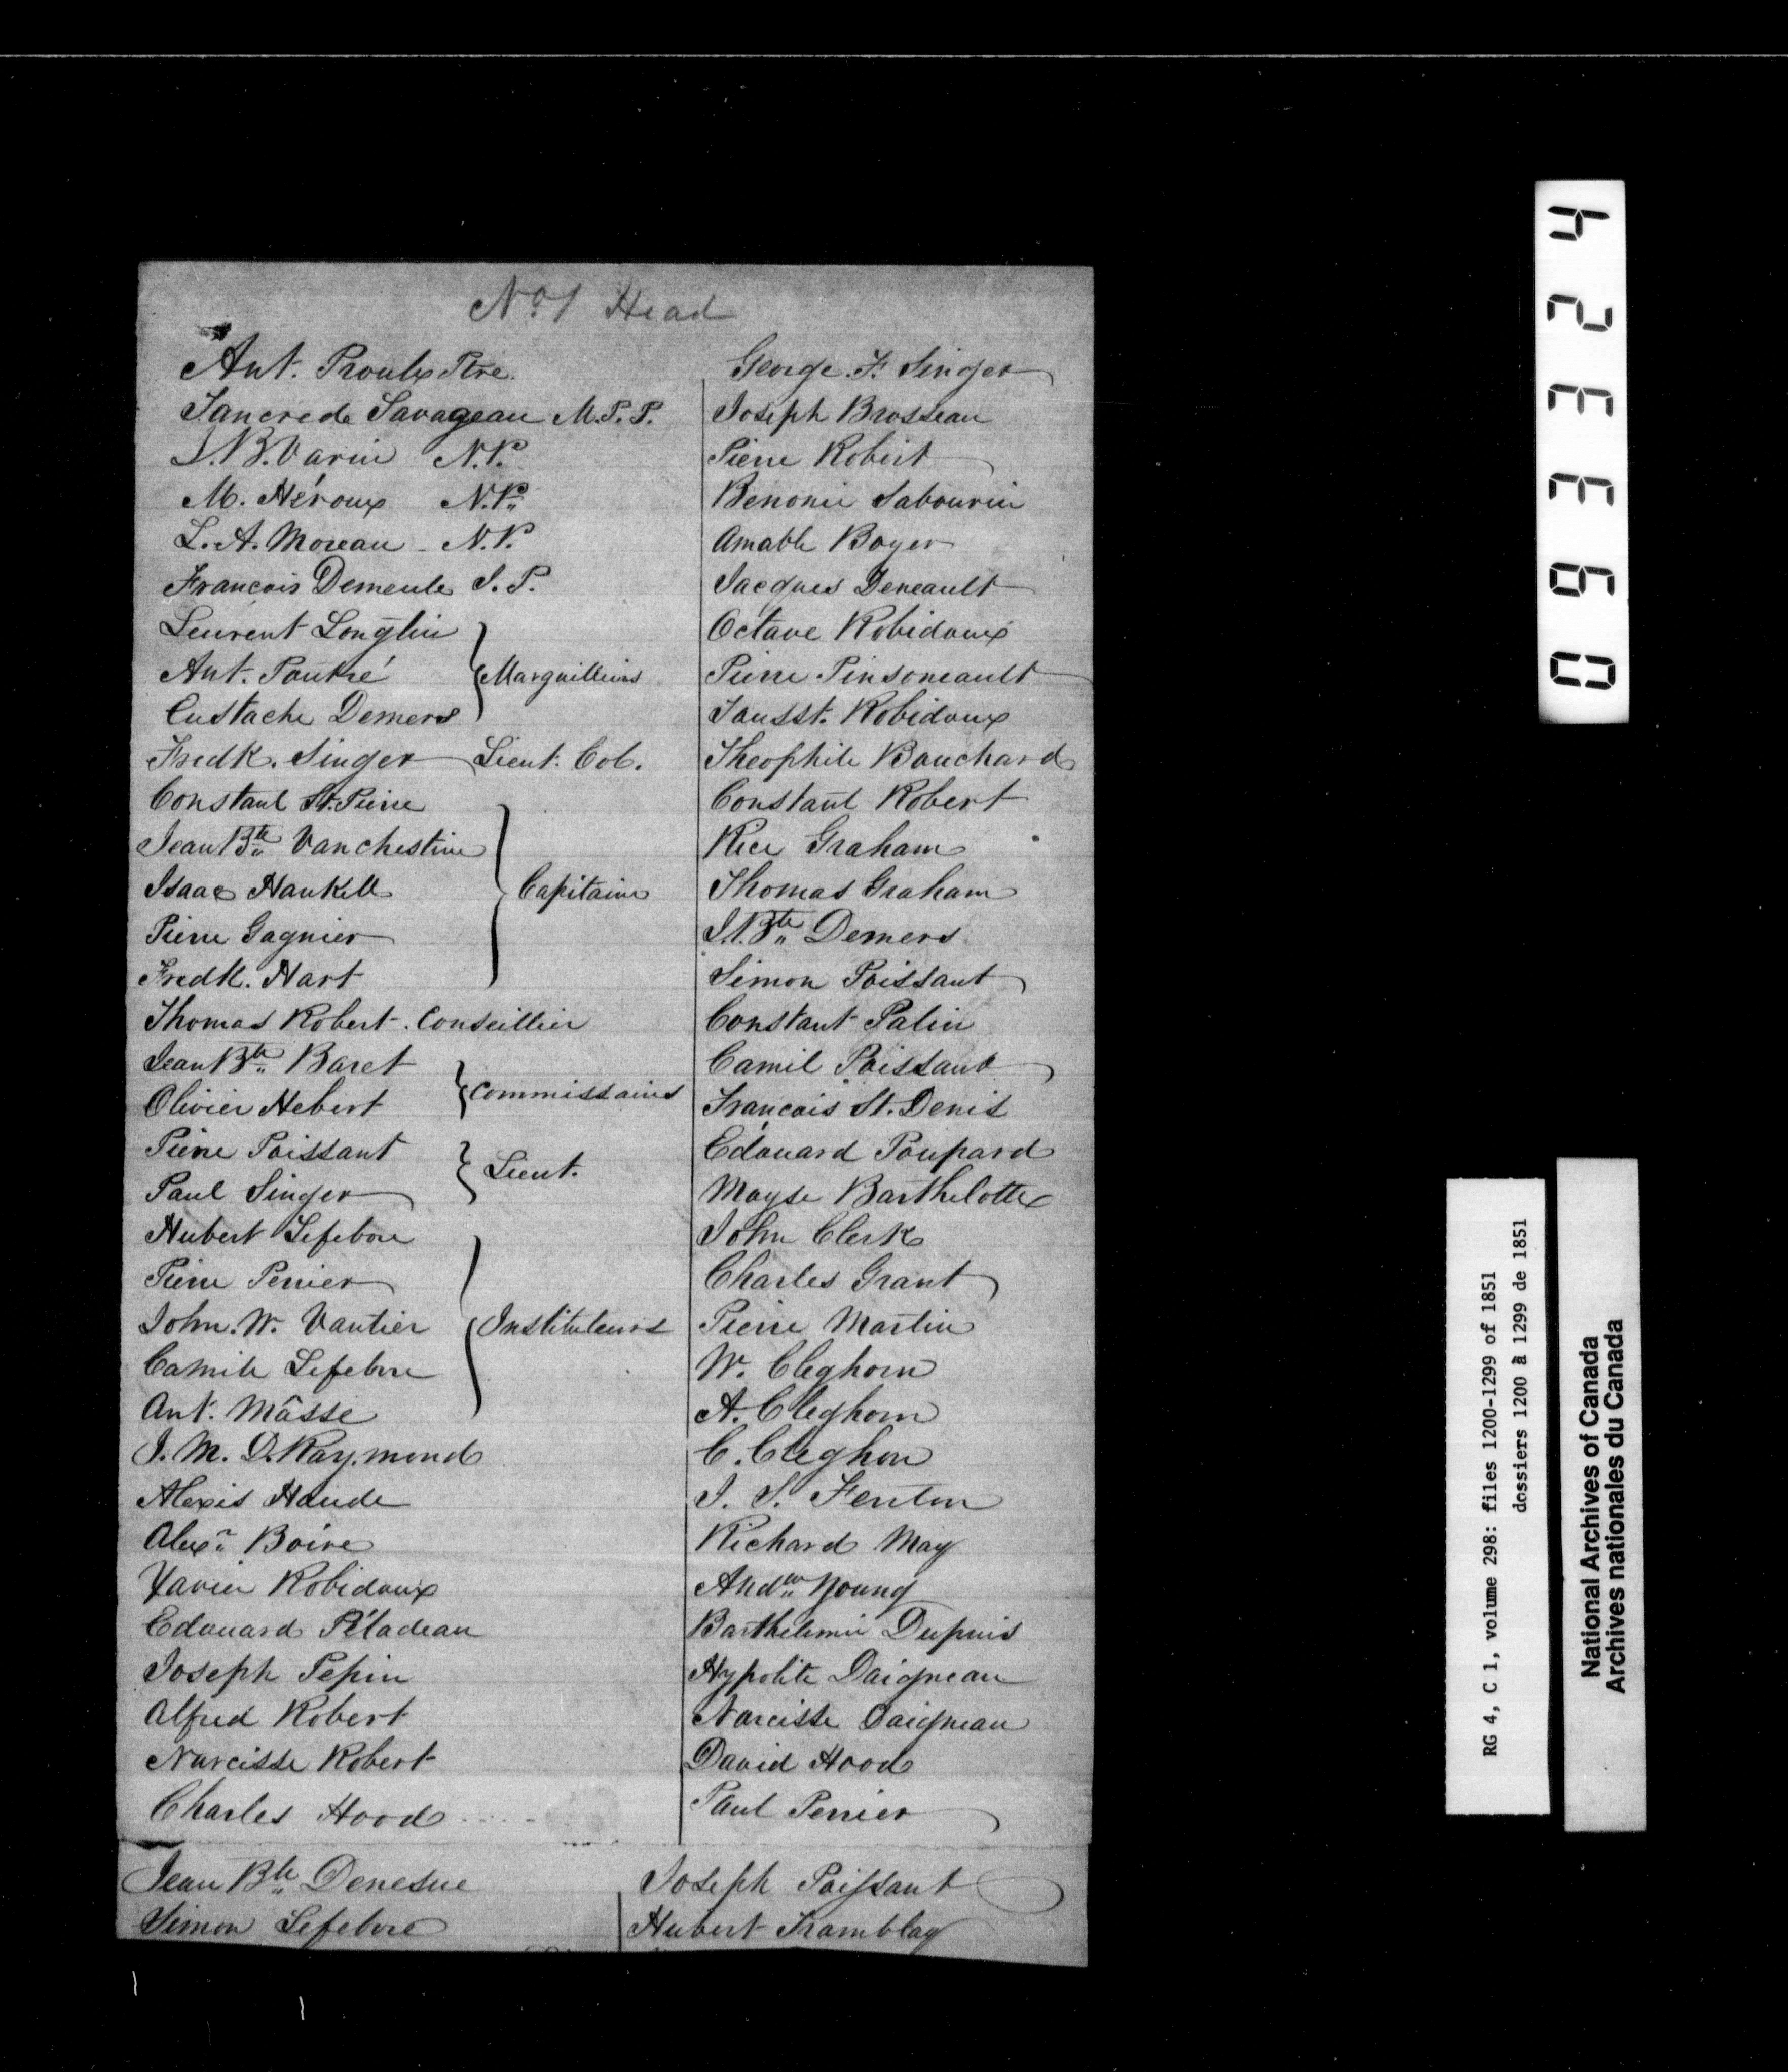 No. 1 Head
Ant. Proulx Ptre.
Tancrede Sauvageau M.P.P.
J. B. Varin N.P.
M. Héroux N.P.
L. A. Moreau - N.P.
Francois Demeule J. P.
Leurent Longtin
Ant. Poutré } Marguilliers
Eustache Demers
Fredk. Singer Lieut. Col.
Constant St. Pierre
Jean Bte. Vanchestine
Isaac Haukell } Capitaine
Pierre Gagnier
Fredk. Hart
Thomas Robert. Conseillier
Jean Bte. Baret
Olivier Hebert } Commissaires
Pierre Poissant
Paul Singer } Lieut.
Hubert Lefebvre
Pierre Perrier
John. W. Vautier } Instituteurs
Camile Lefebvre
Ant. Mâsse
J. M. D. Raymond
Alexis Houde
Alexr. Boire
Xavier Robidoux
Edouard Péladeau
Joseph Pepin
Alfred Robert
Narcisse Robert
Charles Hood
Jean Bte. Denesue
Simon Lefebvre
George. F. Singer
Joseph Brosseau
Pierre Robert
Benonie Sabourin
Amable Boyer
Jacques Deneault
Octave Robidoux
Pierre Pinsoneault
Tousst. Robidoux
Theophile Bouchard
Constant Robert
Rice Graham
Thomas Graham
J. Bte. Demers
Simon Poissant
Constant Palin
Camil Poissant
François St. Denis
Edouard Poupard
Moyse Barthelotte
John Clerk
Charles Grant
Pierre Martin
W. Cleghorn
A. Cleghorn
C. Cleghon
J. S. Fenton
Richard May
Andw. Young
Barthelemie Dupuis
Hypolite Daigneau
Narcisse Daigneau
David Hood
Paul Perrier
Joseph Poissant
Hubert Tramblay
093324
RG 4, C 1, volume 298: files 1200-1299 of 1851
dossiers 1200 à 1299 de 1851
National Archives of Canada
Archives nationales du Canada